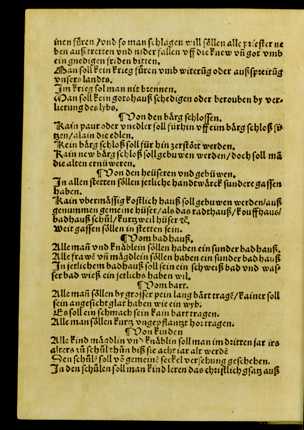 inen füren / vnd so man schlagen will söllen alle priester ne
ben außtretten vnd nider fallen vff die knew vn̄ got vmb
ein gnedigen friden bitten.
Man soll kein krieg füren vmb witerūg oder außspreitūg
vnsers landts.
Im krieg sol man nit brennen.
Man soll kein gotshauß schedigen oder berouben by ver-
lierung des lybs.
¶ Von den bärg schlossen.
Kain paur oder vnedler soll fürhin vff eim bärg schloß si-
tzen / alain die edlen.
Kein bärg schloß soll für hin zerstört werden.
Kain new bärg schloß soll gebuwen werden / doch soll mā
die alten ernüweren.
¶ Von den heüseren vnd gebüwen.
In allen stetten söllen jetliche handtwärck sundere gassen
haben.
Kain vbermässig kostlich hauß soll gebuwen werden / auß
genummen gemeine hüser / als das radthauß / kouffhauß /
badhauß schül / kurtzweil hüser ꝛc.
weit gassen söllen in stetten sein.
¶ Vom badhauß.
Alle man̄ vnd knäblein söllen haben ein sunder bad hauß.
Alle frawē vn̄ mägdlein söllen haben ein sunder bad hauß
In jetlichem badhauß soll sein ein schweiß bad vnd was-
ser bad wie es ein jetlichs haben wil.
¶ Vom bart.
Alle man̄ söllen by grosser pein lang bärt tragē / kainer soll
sein angesicht glat haben wie ein wyb.
Es soll ein schmach sein kain bart tragen.
Alle man söllen kurtz vngepflantzt hor tragen.
¶ Von kinden
Alle kind mägdlin vnd knäblin soll man im dritten jar irs
alters zū schül thūn biß sie acht jar alt werdē
Den schülē soll vō gemeinē seckel versehung geschehen.
In den schülen soll man kind leren das christlich gsatz auß